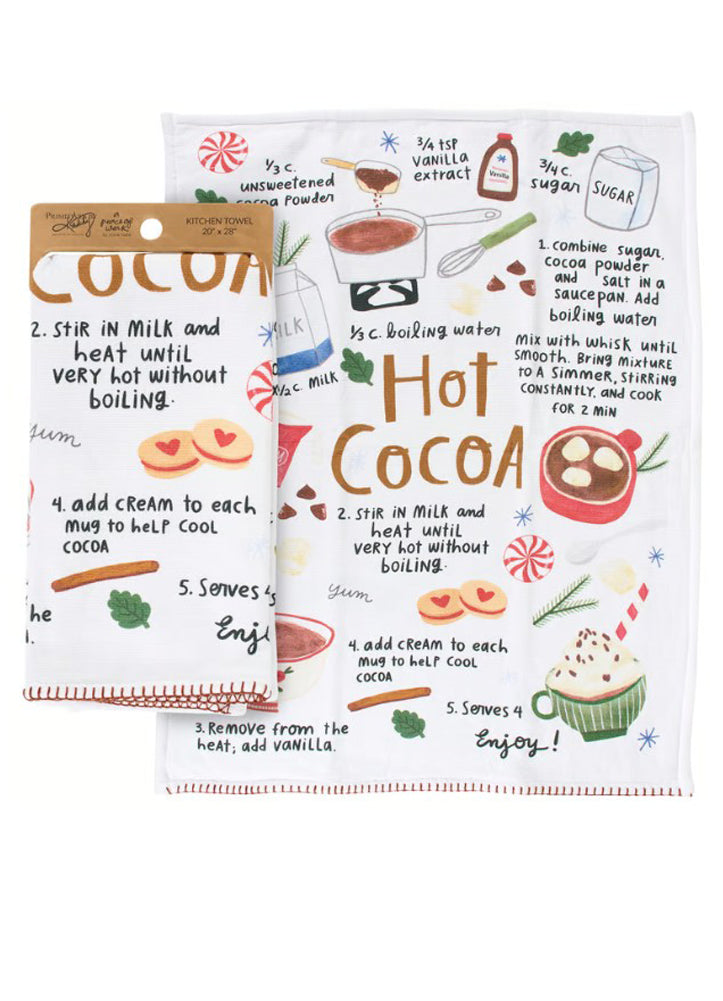 PRIMITIVES by Kathy
a piece of work
KITCHEN TOWEL
20" x 28"
COCOA
2. Stir in Milk and
heat until
very hot without
boiling.
yum
4. add cream to each
mug to help cool
cocoa
5. Serves 4
Enj
he
1/3 c.
unsweetened
cocoa powder
3/4 tsp
vanilla
extract
Vanilla
3/4 c.
sugar
SUGAR
1. combine sugar,
cocoa powder
and salt in a
saucepan. Add
boiling water
Mix with whisk until
smooth. Bring mixture
to a simmer, stirring
constantly, and cook
for 2 min
1/3 c. boiling water
ILK
1/2 c. Milk
Hot
COCOA
2. Stir in Milk and
heat until
very hot without
boiling.
yum
4. add cream to each
mug to help cool
cocoa
5. Serves 4
Enjoy!
3. Remove from the
heat; add vanilla.